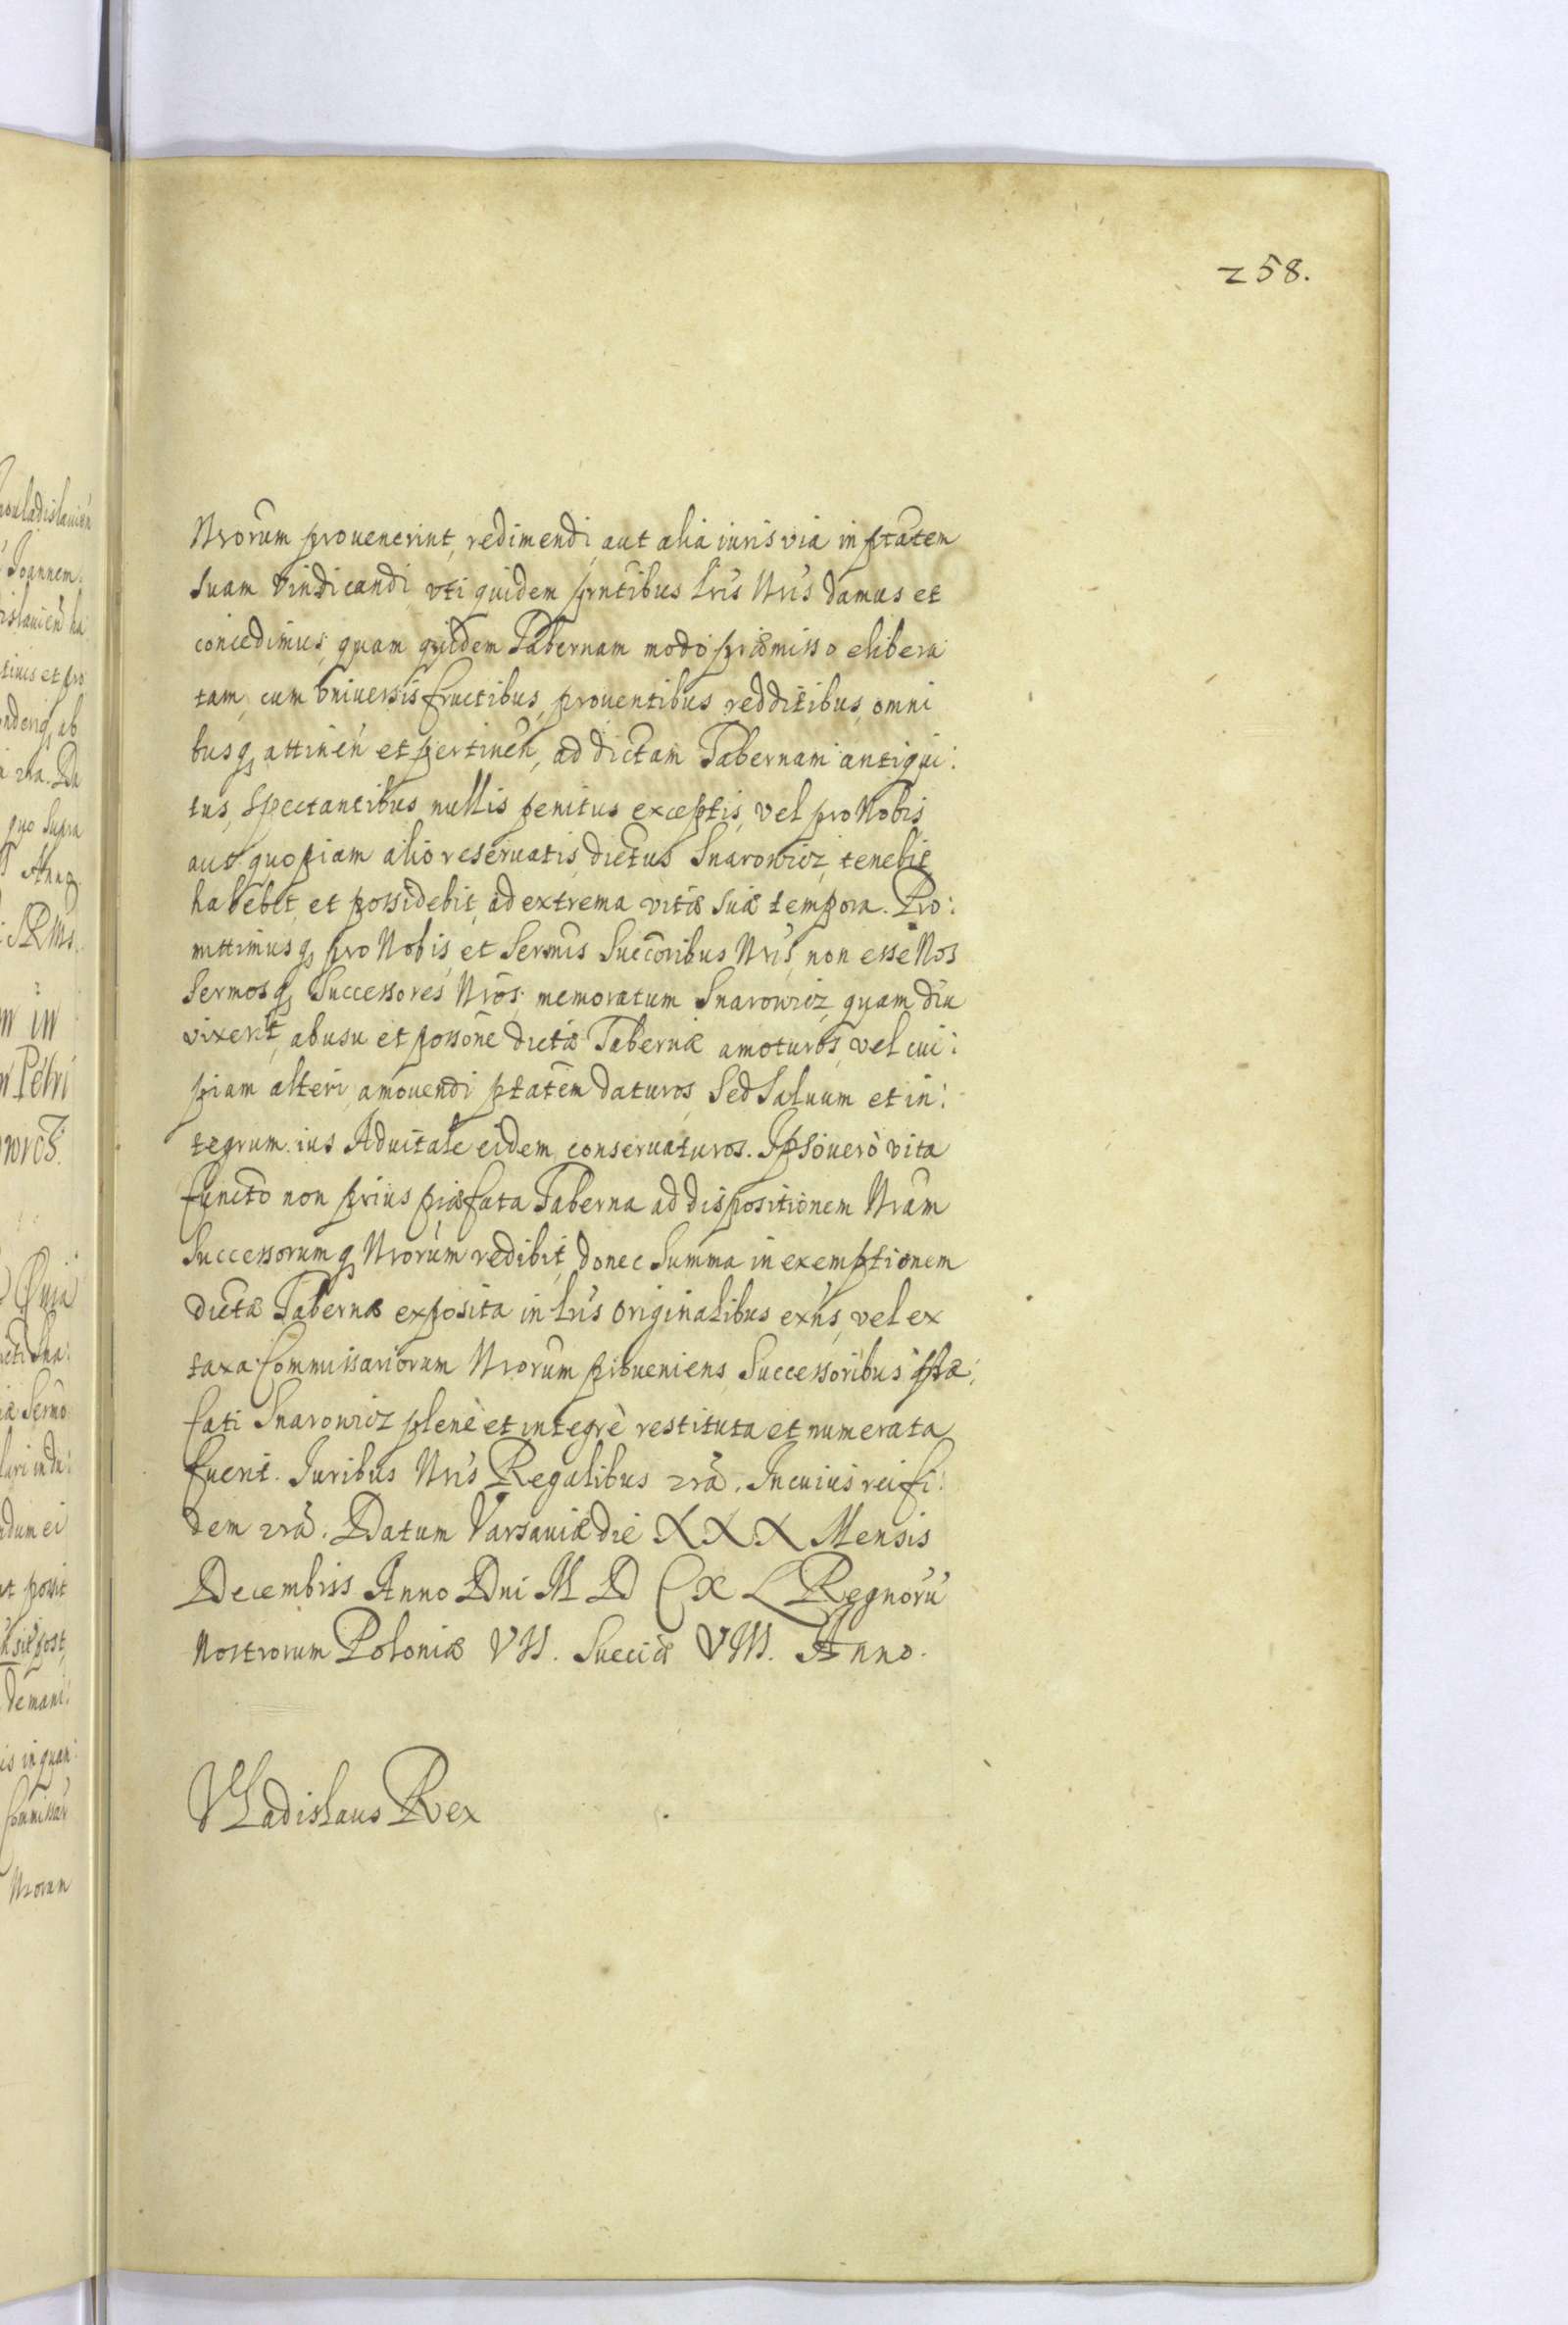 258.
Nrorum prouenerint, redimendi aut alia iuris via in ptatem
suam vindicandi, vti quidem pntibus lris Nris damus et
concedimus; quam quidem Tabernam modo præmisso elibera
tam, cum vniuersis fructibus, prouentibus redditibus, omni
busq attinen et pertinen, ad dictam Tabernam antiqui:
tus, spectantibus nullis penitus exceptis, vel pro Nobis
aut quopiam alio reseruatis, dictus Snarowicz, tenebit
habebit, et possidebit, ad extrema vitæ suæ tempora. Pro:
mittimusq pro Nobis, et Sermis Succoribus Nris, non esse Nos
Sermosq Successores Nros, memoratum Snarowicz, quam diu
vixerit, ab usu et possone dictæ Tabernæ amoturos, vel cui:
piam alteri amouendi ptatem daturos, sed saluum et in:
tegrum ius Aduitale eidem conseruaturos. Ipso verò vita
functo non prius præfata Taberna ad dispositionem Nram
Successorumq Nrorum redibit, donec summa in exemptionem
dictæ Tabernæ exposita in lris originalibus exns, vel ex
taxa Commissariorum Nrorum proueniens Successoribus præ:
fati Snarowicz plenè et integrè restituta et numerata
fuerit. Iuribus Nris Regalibus 2rã. In cuius rei fi:
dem 2rã. Datum Varsauiæ die XXX Mensis
Decembris Anno Dni M D C X L Regnorũ
Nostrorum Poloniæ VII. Sueciæ VIII. Anno.
Vladislaus Rex
Joannem
quo supra
Petri
Quia
dum ei
ut possit
Nrorum